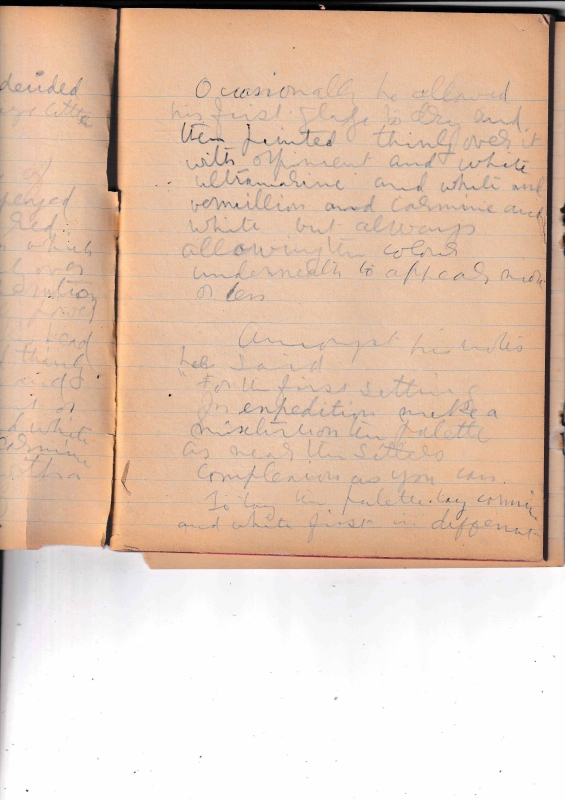 decided
little
of
red
which
over
lower
head
thing
and
or
white
carmine
Occasionally he allowed
his first glaze to dry and
then painted thinly over it
with orpiment and white
ultramarine and white and
vermillion and carmine and
white but always
allowing the colour
underneath to appear more
or less
Amongst his notes
he said
"For the first sitting
for expedition make a
mixture on the palette
as near the sitters
complexion as you can.
To lay the palette. lay carmine
and white first in different